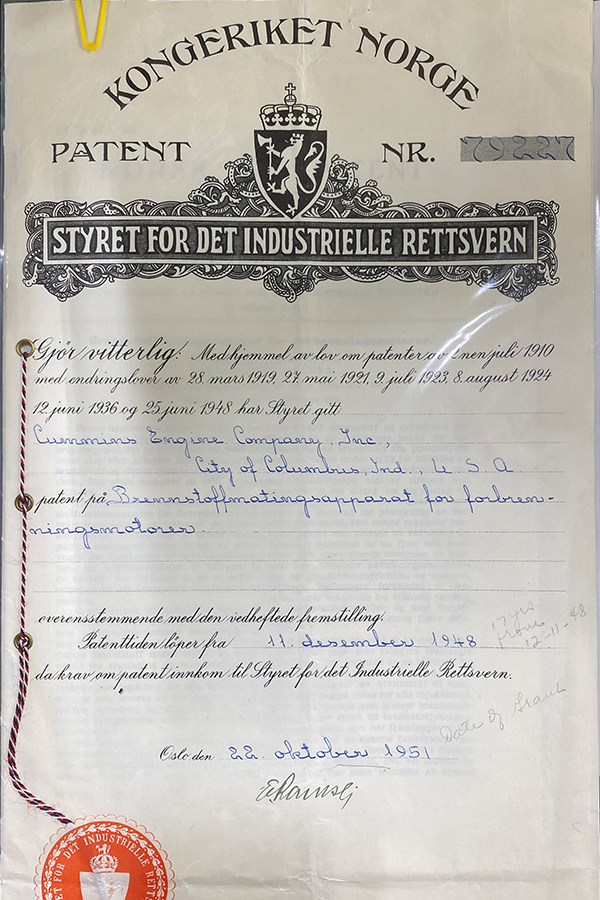 KONGERIKET NORGE
PATENT NR. 79227
STYRET FOR DET INDUSTRIELLE RETTSVERN
Gjör vitterlig: Med hjemmel av lov om patenter av 2nen juli 1910
med endringslover av 28. mars 1919, 27. mai 1921, 9. juli 1923, 8. august 1924
12. juni 1936 og 25. juni 1948 har Styret gitt
Cummins Engine Company, Inc.,
City of Columbus, Ind., U. S. A.
patent på Brennstoffmatingsapparat for forbren-
ningsmotorer.
overensstemmende med den vedheftede fremstilling.
17 yrs
from
12-11-48
Patenttiden löper fra 11. desember 1948
da krav om patent innkom til Styret for det Industrielle Rettsvern.
Date of Grant
Oslo den 22. oktober 1951
ET FOR DET INDUSTRIELLE RETTS